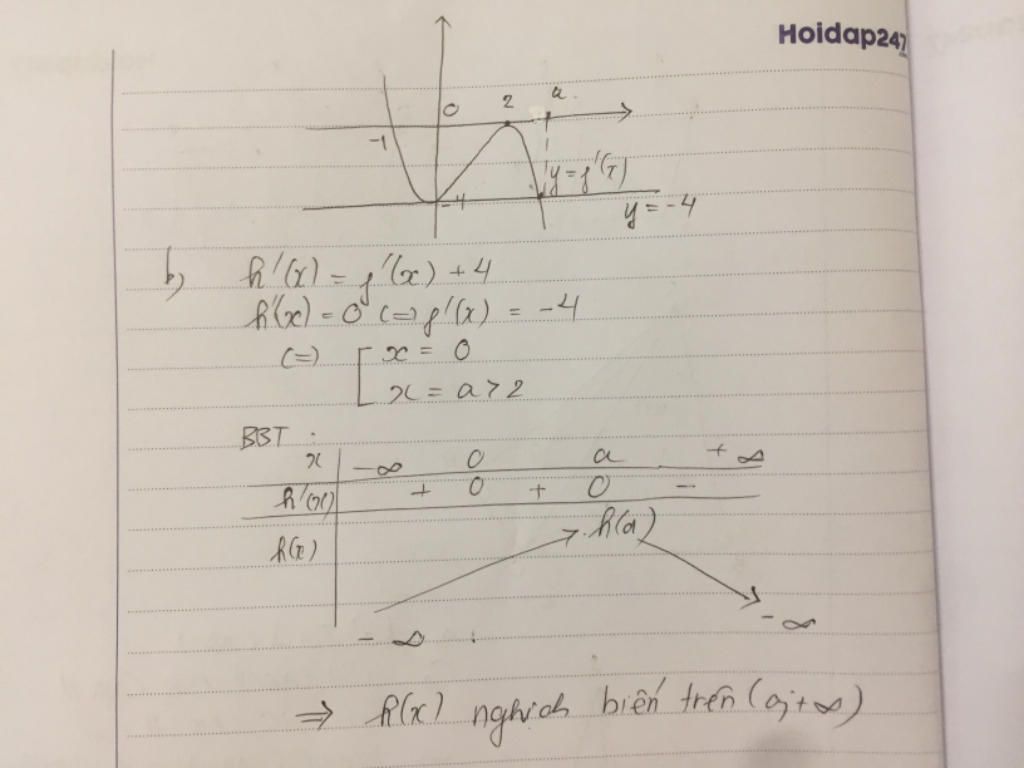 Hoidap247
0 2 a
-1
y = f'(x)
-4
y = -4
b) h'(x) = f'(x) + 4
h'(x) = 0 (=) f'(x) = -4
(=) [ x = 0
x = a > 2
BBT :
x -∞ 0 a +∞
h'(x) + 0 + 0 -
h(x) h(a)
-∞ -∞
⇒ h(x) nghịch biến trên (a; +∞)